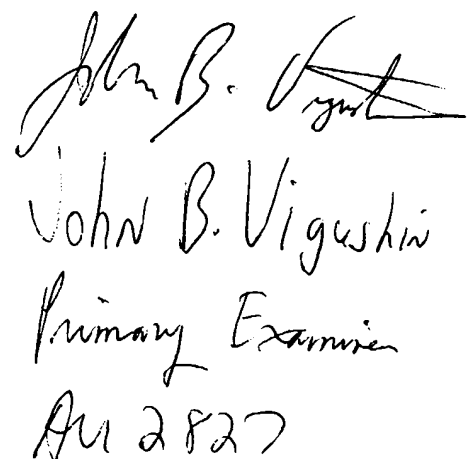 John B. Vigush
John B. Vigushin
Primary Examiner
AU 2827